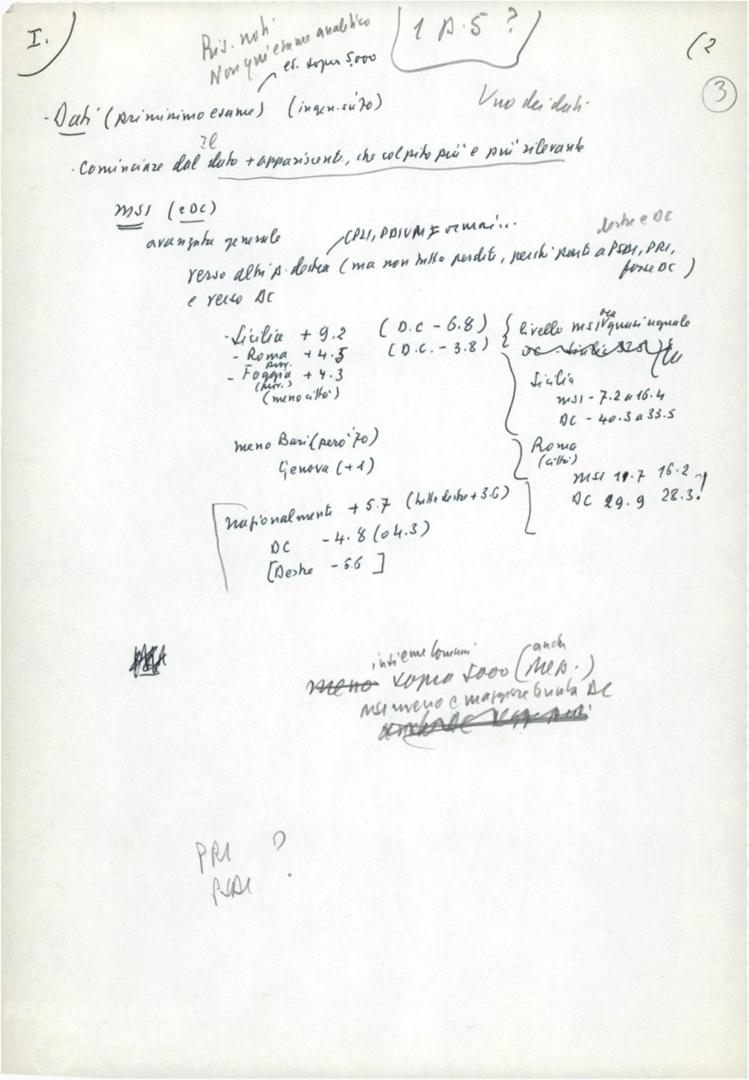 I.)
Ris. noti
Non qui esame analitico
es. sopra 5.000
1 p. 5 ?
(2
3
- Dati (primissimo esame) (ingen. su '70)
Uno dei dati
Il
- Cominciare dal dato + appariscente, che colpito più e più rilevante
MSI (e DC)
destre e DC
avanzata generale
(PLI, PDIUM
verso altri p. destra (ma non tutte perdite, perché punti a PSDI, PRI,
forse DC)
e verso DC
- Sicilia + 9.2 (D.C - 6.8)
- Roma + 4.5 (D.C. - 3.8)
prov.
- Foggia + 4.3
(prov.)
(meno città)
Livello MSI quasi uguale
Sicilia
MSI - 7.2 a 16.4
DC - 40.3 a 33.5
meno Bari (però '70)
Genova (+1)
Roma
(città)
MSI 11.7 16.2
DC 29.9 28.3!
nazionalmente + 5.7 (tutte destre + 3.6)
DC - 4.8 (o 4.3)
[Destre - 6.6 ]
insieme comuni
anch
meno sopra 5000 (Mer.)
MSI meno e maggiore tenuta DC
PRI ?
PSDI